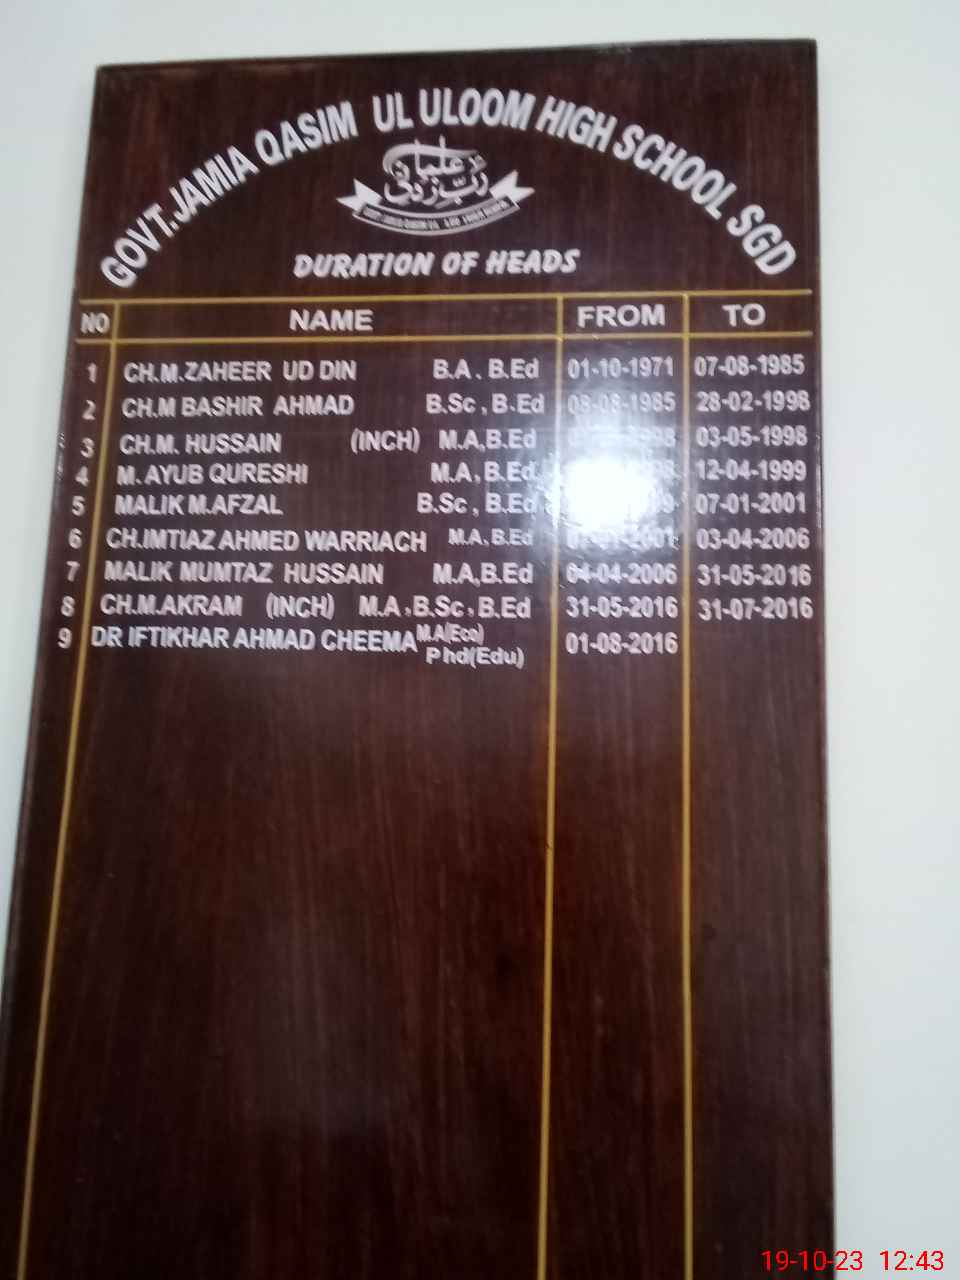 GOVT.JAMIA QASIM UL ULOOM HIGH SCHOOL SGD
رَبِّ زِدْنِي عِلْمًا
DURATION OF HEADS
NO NAME FROM TO
1 CH.M.ZAHEER UD DIN B.A. B.Ed 01-10-1971 07-08-1985
2 CH.M BASHIR AHMAD B.Sc, B.Ed 08-08-1985 28-02-1998
3 CH.M. HUSSAIN (INCH) M.A,B.Ed 03-05-1998
4 M. AYUB QURESHI M.A, B.Ed 12-04-1999
5 MALIK M.AFZAL B.Sc, B.Ed 07-01-2001
6 CH.IMTIAZ AHMED WARRIACH M.A,B.Ed 03-04-2006
7 MALIK MUMTAZ HUSSAIN M.A,B.Ed 04-04-2006 31-05-2016
8 CH.M.AKRAM (INCH) M.A,B.Sc,B.Ed 31-05-2016 31-07-2016
9 DR IFTIKHAR AHMAD CHEEMA M.A(Eco) 01-08-2016
Phd(Edu)
19-10-23 12:43